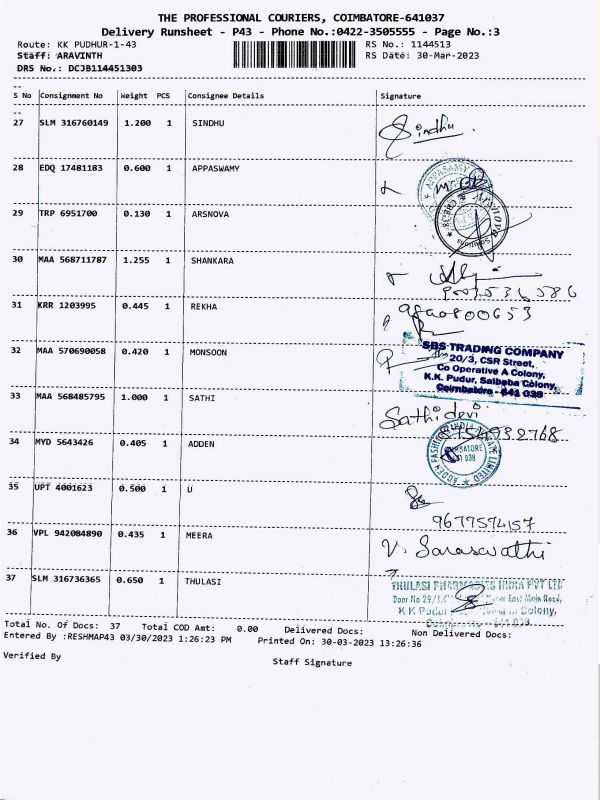 THE PROFESSIONAL COURIERS, COIMBATORE-641037
Delivery Runsheet - P43 - Phone No.:0422-3505555 - Page No.:3
Route: KK PUDHUR-1-43 RS No.: 1144513
Staff: ARAVINTH RS Date: 30-Mar-2023
DRS No.: DCJB114451303
S No Consignment No Weight PCS Consignee Details Signature
27 SLM 316760149 1.200 1 SINDHU Sindhu
28 EDQ 17481183 0.600 1 APPASWAMY
APPASAMY
29 TRP 6951700 0.130 1 ARSNOVA
Arsnova
30 MAA 568711787 1.255 1 SHANKARA
31 KRR 1203995 0.445 1 REKHA
32 MAA 570690058 0.420 1 MONSOON
SBS TRADING COMPANY
20/3, CSR Street,
Co Operative A Colony,
K.K. Pudur, Saibaba Colony,
Coimbatore - 641 038
33 MAA 568485795 1.000 1 SATHI Sathidevi
34 MYD 5643426 0.405 1 ADDEN
35 UPT 4001623 0.500 1 U
9677574157
36 VPL 942084890 0.435 1 MEERA V. Saraswathi
37 SLM 316736365 0.650 1 THULASI
THULASI PHARMACIES INDIA PVT LTD
Door No 29/1, East Main Road,
K K Pudur Colony,
641 038
Total No. Of Docs: 37 Total COD Amt: 0.00 Delivered Docs: Non Delivered Docs:
Entered By :RESHMAP43 03/30/2023 1:26:23 PM Printed On: 30-03-2023 13:26:36
Verified By Staff Signature